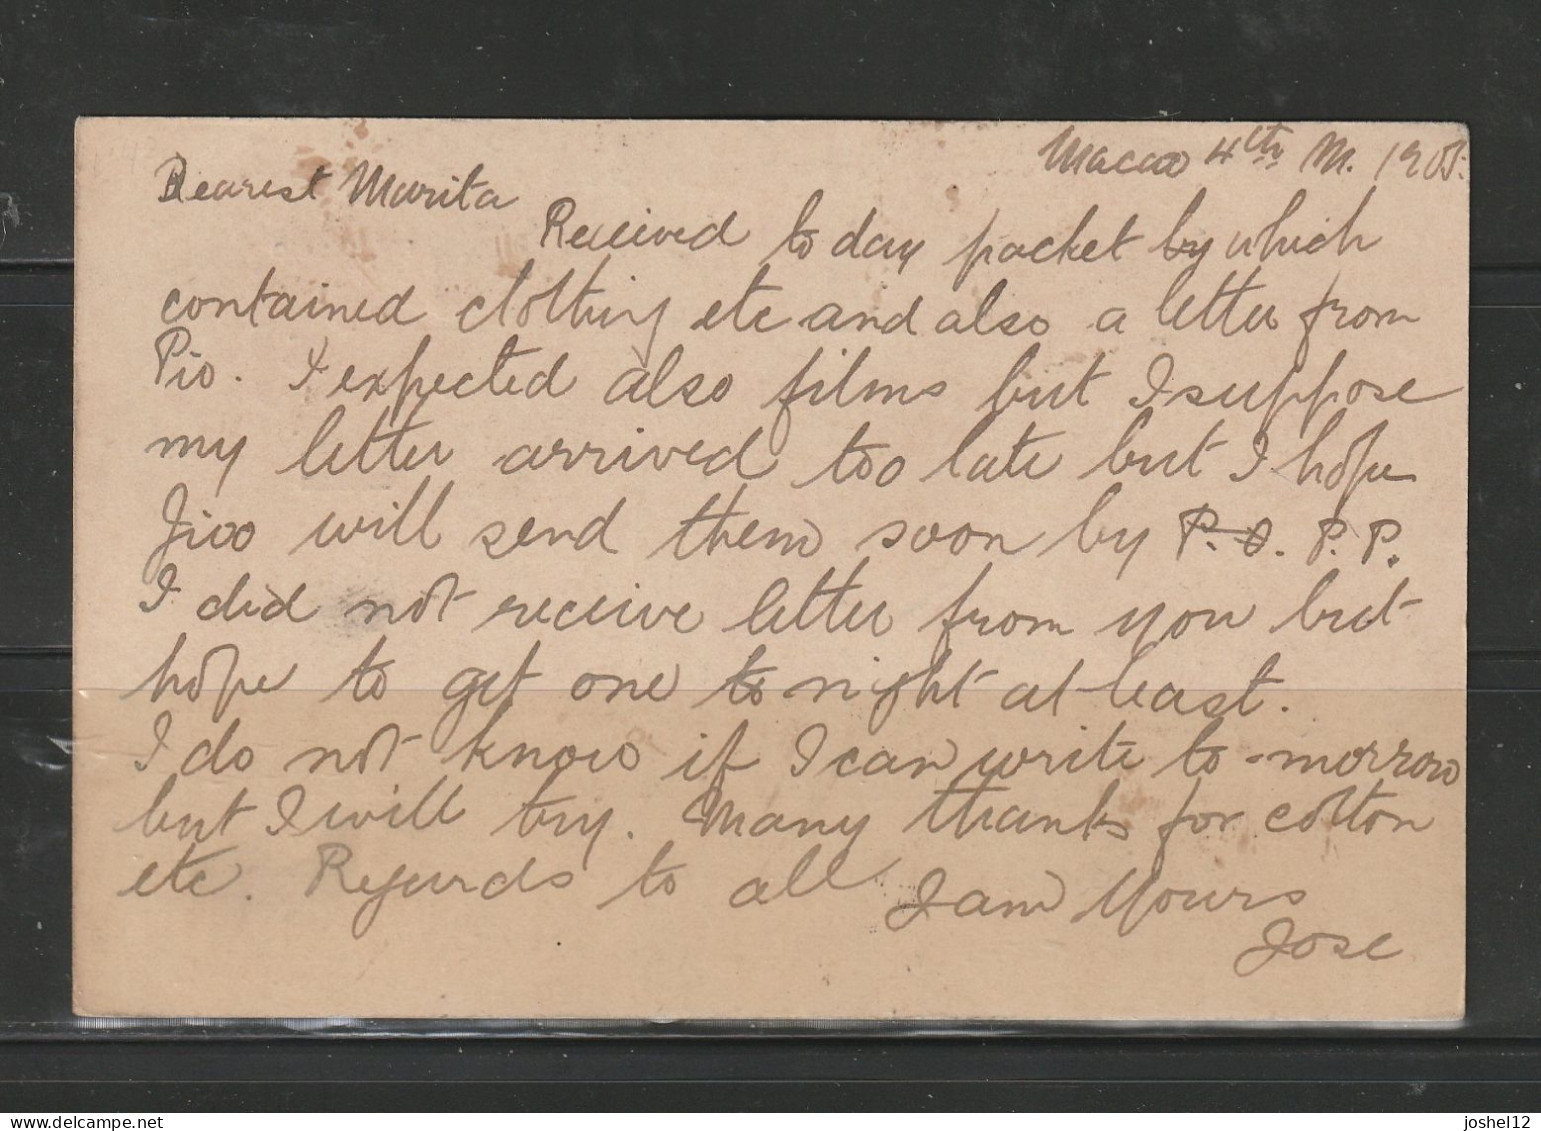 Macao 4th M. 1905.
Dearest Marita
Received to day packet by which
contained clothing etc and also a letter from
Pio. I expected also films but I suppose
my letter arrived too late but I hope
will send them soon by P.O. P.P.
I did not receive letter from you but
hope to get one to night at least.
I do not know if I can write to-morrow
but I will try. Many thanks for cotton
etc. Regards to all I am Yours
Jose
joshel12
www.delcampe.net